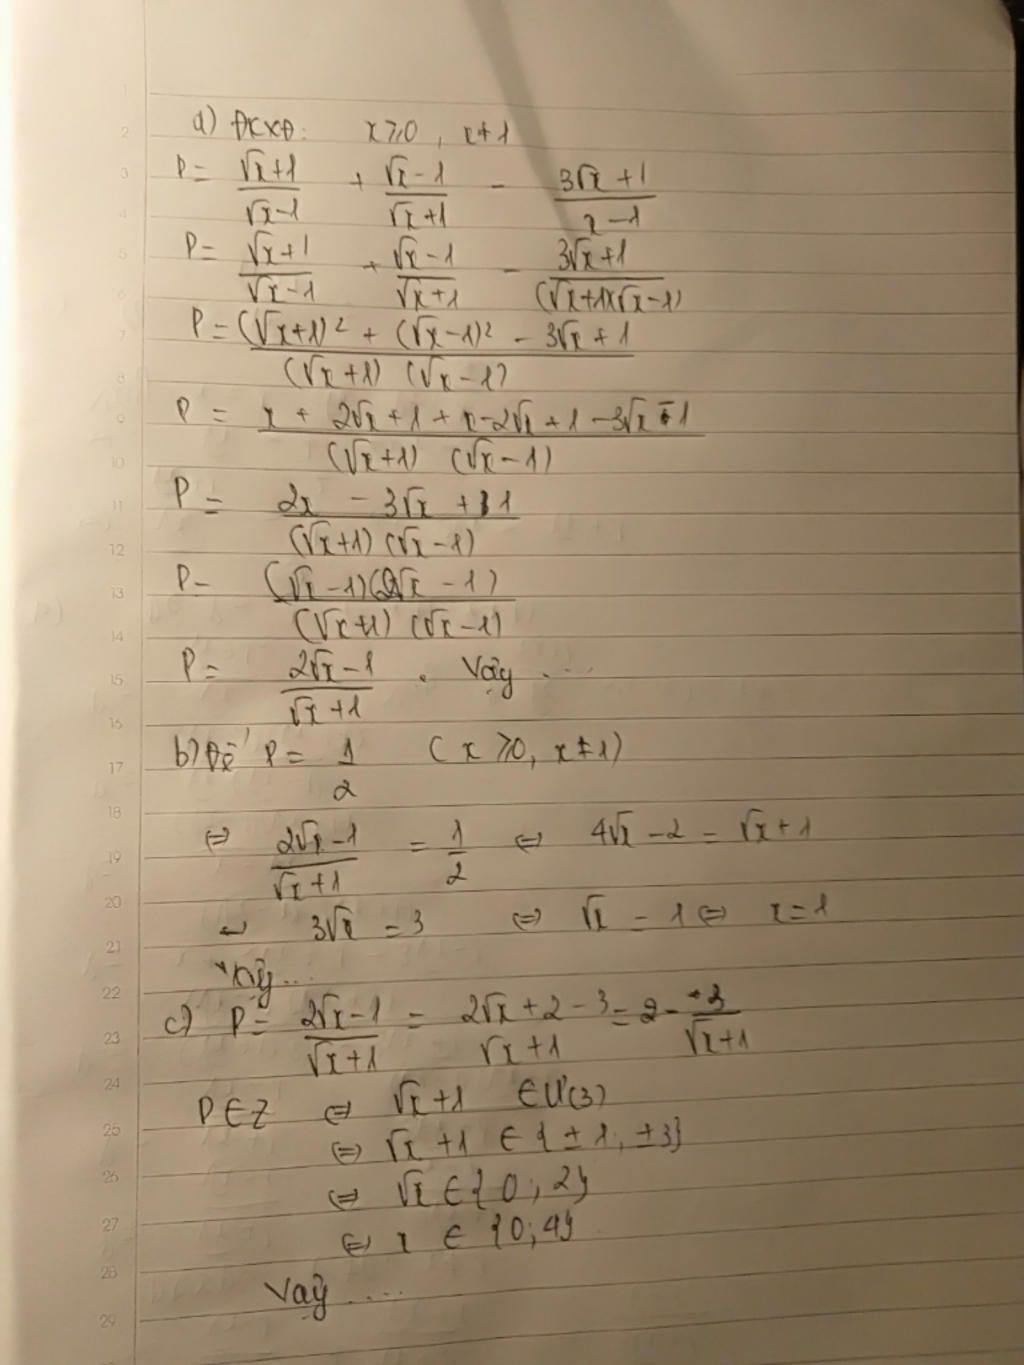 a) ĐKXĐ: x ≥ 0, x ≠ 1
P = (√x+1)/(√x-1) + (√x-1)/(√x+1) - (3√x+1)/(x-1)
P = (√x+1)/(√x-1) + (√x-1)/(√x+1) - (3√x+1)/((√x+1)(√x-1))
P = ((√x+1)² + (√x-1)² - 3√x+1)/((√x+1)(√x-1))
P = (x + 2√x + 1 + x - 2√x + 1 - 3√x - 1)/((√x+1)(√x-1))
P = (2x - 3√x + 1)/((√x+1)(√x-1))
P = ((√x-1)(2√x-1))/((√x+1)(√x-1))
P = (2√x-1)/(√x+1). Vậy ....
b) Để P = 1/2 (x ≥ 0, x ≠ 1)
⇔ (2√x-1)/(√x+1) = 1/2 ⇔ 4√x - 2 = √x + 1
⇔ 3√x = 3 ⇔ √x = 1 ⇔ x = 1
Vậy ...
c) P = (2√x-1)/(√x+1) = (2√x+2-3)/(√x+1) = 2 - 3/(√x+1)
P ∈ Z ⇔ √x+1 ∈ Ư(3)
⇔ √x+1 ∈ {±1; ±3}
⇔ √x ∈ {0; 2}
⇔ x ∈ {0; 4}
Vậy ....